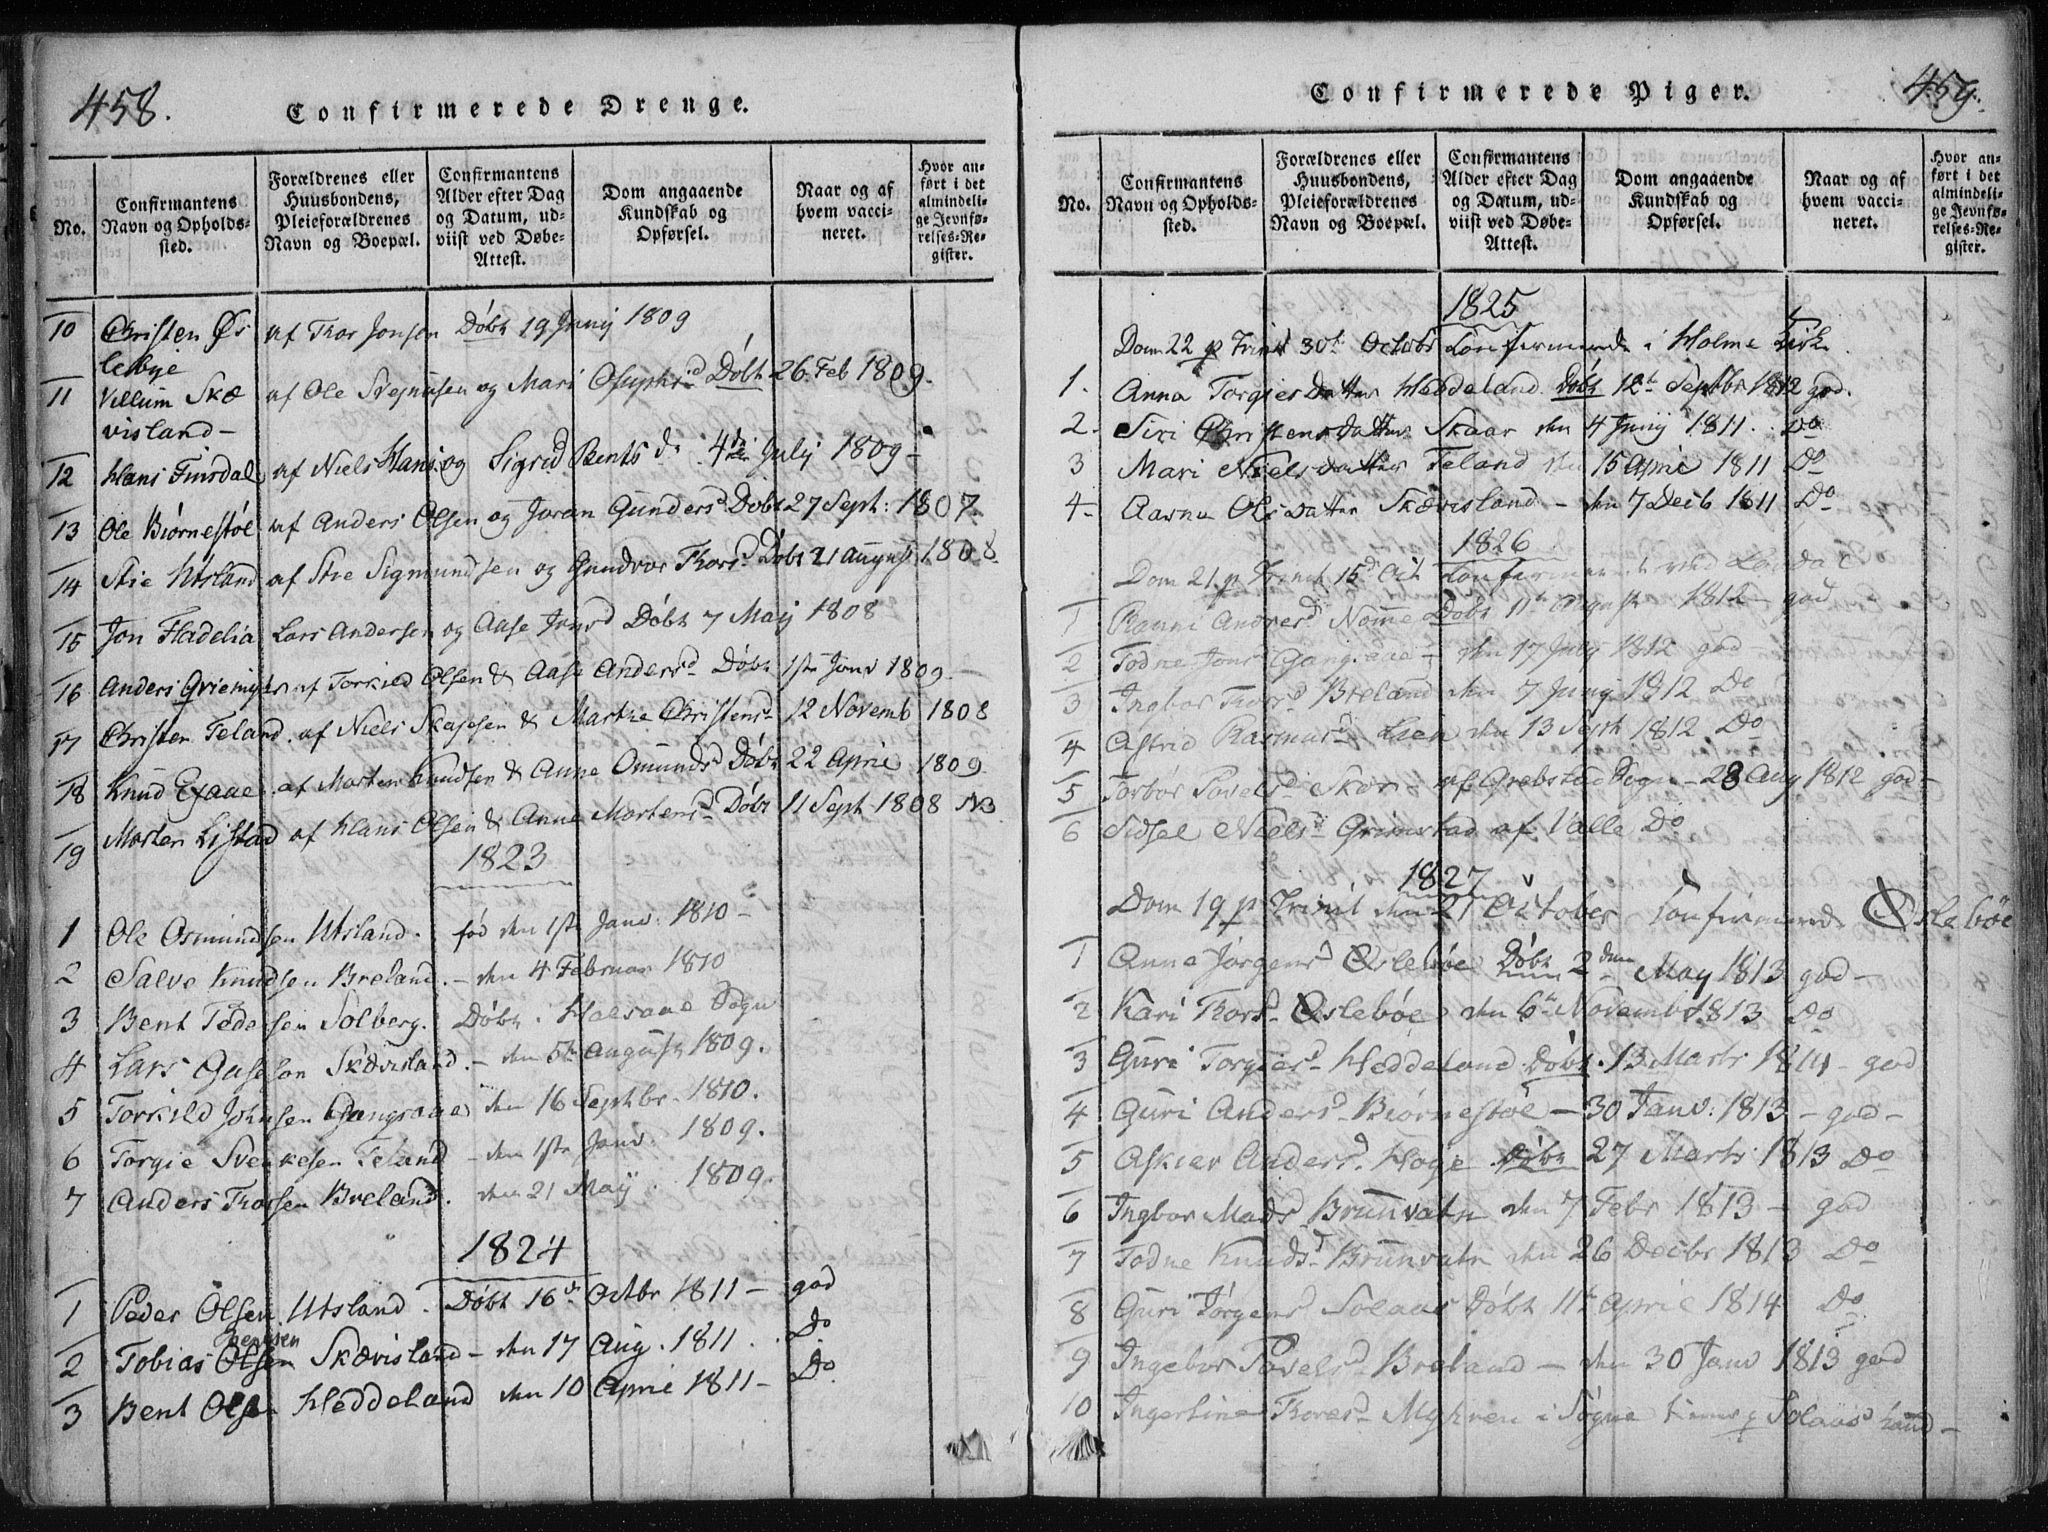 458.
Confirmerede Drenge.
No.
Confirmantens Navn og Opholds-sted.
Forældrenes eller Huusbondens, Pleieforældrenes Navn og Boepæl.
Confirmantens Alder efter Dag og Datum, ud-viist ved Døbe-Attest.
Dom angaaende Kundskab og Opførsel.
Naar og af hvem vacci-neret.
Hvor an-ført i det almindeli-ge Jevnfø-relses-Re-gister.
10 Christen Øs af Thor Jonsen Døbt 19 Junij 1809
lebye
11 Villum Skæ af Ole Stejnusen og Mari Osuphsd Døbt 26 Feb 1809.
visland –
12 Hans Finsdal af Niels Hans. og Sigrid Bents d. 4de July 1809 –
13 Ole Biørnestøl af Anders Olsen og Joran Gundersd Døbt 27 Sept: 1807.
14 Stie Utsland af Stie Sigmundsen og Gundvor Thorsd Døbt 21 August 1808
15 Jon Fladelia Lars Andersen og Aase Jensd Døbt 7 Maij 1808
16 Anders Qviemyhr af Torkild Olsen & Aase Andersd Døbt 1ste Janv 1809 –
17 Christen Teland. af Niels Skajesen & Marthe Christensd 12 Novemb 1808
18 Knud af Morten Knudsen & Anne Omundsd Døbt 22 April 1809
19 Morten Listad af Hans Olsen & Anne Mortensd Døbt 11 Sept 1808 NB
1823
1 Ole Osmundsen Utsland. fød den 1ste Janv. 1810 –
2 Salve Knudsen Breland. – den 4 Februar 1810
3 Bent Pedersen Solberg. Døbt i Halsaae Sogn
4 Lars Aasesen Skævisland. – den 5te August 1809.
5 Torkild Johnsen Gangsaae den 16 Septbr. 1810.
6 Torgie Svenkesen Teland – den 1ste Janv. 1809.
7 Anders Thorsen Breland. den 21 Maij. 1809.
1824
1 Peder Olsen Utsland. Døbt 16de Octbr 1811 – god
2 Tobias Olsen Skævisland – den 17 Aug. 1811. Do
3 Bent Olsen Heddeland den 10 April 1811 – Do
459.
Confirmerede Piger.
No.
Confirmantens Navn og Opholds-sted.
Forældrenes eller Huusbondens, Pleieforældrenes Navn og Boepæl.
Confirmantens Alder efter Dag og Datum, ud-viist ved Døbe-Attest.
Dom angaaende Kundskab og Opførsel.
Naar og af hvem vacci-neret.
Hvor an-ført i det almindeli-ge Jevnfø-relses-Re-gister.
1825
Dom 22 p Trinit 30te Octobr Confirmerede i Holme Kirke.
1. Anna Torgiers Datter Heddeland. Døbt 12te Septbr 1812 god.
2. Siri Christens datter Skaar den 4 Junij 1811. Do
3 Mari Niels datter Teland den 15 April 1811 Do
4. Aasna Ols Datter Skævisland – den 7 Decb 1811 Do
1826
Dom 21 p Trinit 15d Oct Confirmerede ved Laudal
1 Ranni Andersd Nome Døbt 11te August 1812 – god
2 Todne Jonsd Gangsaae – den 17 July 1812 god
3 Ingbor Thorsd Breland den 7 Junij 1812 Do
4 Astrid Rasmusd Lien den 13 Sept 1812. Do
5 Torbor Povelsd Skar af Grebstad Sogn – 28 Aug 1812 god –
6 Sidsel Nielsd Grimstad af Valle Do
1827
Dom 19 p Trinit den 21 October Confirmerede Øslebøe
1 Anne Jørgensd Øslebøe Døbt 2den May 1813 god –
2 Kari Thorsd Øslebøe den 6te Novembr 1813 Do
3 Guri Torgiersd Heddeland Døbt. 13 Marts 1814 – god
4 Guri Andersd. Biørnestøl – 30 Janv: 1813 – god –
5 Askier Andersd. Høye Døbt 27 Marts 1813 Do
6 Ingbor Madsd Brunvatn den 7 Febr 1813 – god
7 Todne Knudsd Brunvatn den 26 Decbr 1813 Do
8 Guri Jørgensd Solaas Døbt 11te April 1814 Do
9 Ingebor Povelsd Breland – den 30 Janv 1813 god
10 Ingerline Thoresd Myhren i Søgne Solaas